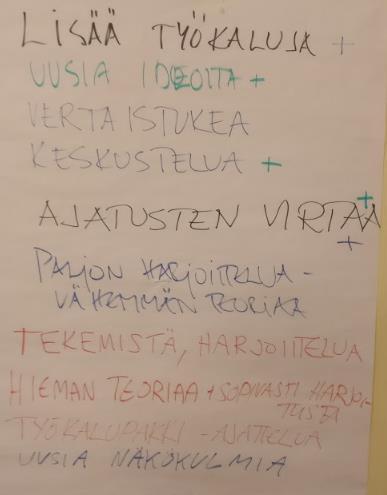 LISÄÄ TYÖKALUJA +
UUSIA IDEOITA +
VERTAISTUKEA
KESKUSTELUA +
AJATUSTEN VIRTAA +
+
PALJON HARJOITTELUA -
VÄHEMMÄN TEORIAA
TEKEMISTÄ, HARJOITTELUA
HIEMAN TEORIAA + SOPIVASTI HARJOI-
TUSTA
TYÖKALUPAKKI - AJATTELUA
UUSIA NÄKÖKULMIA